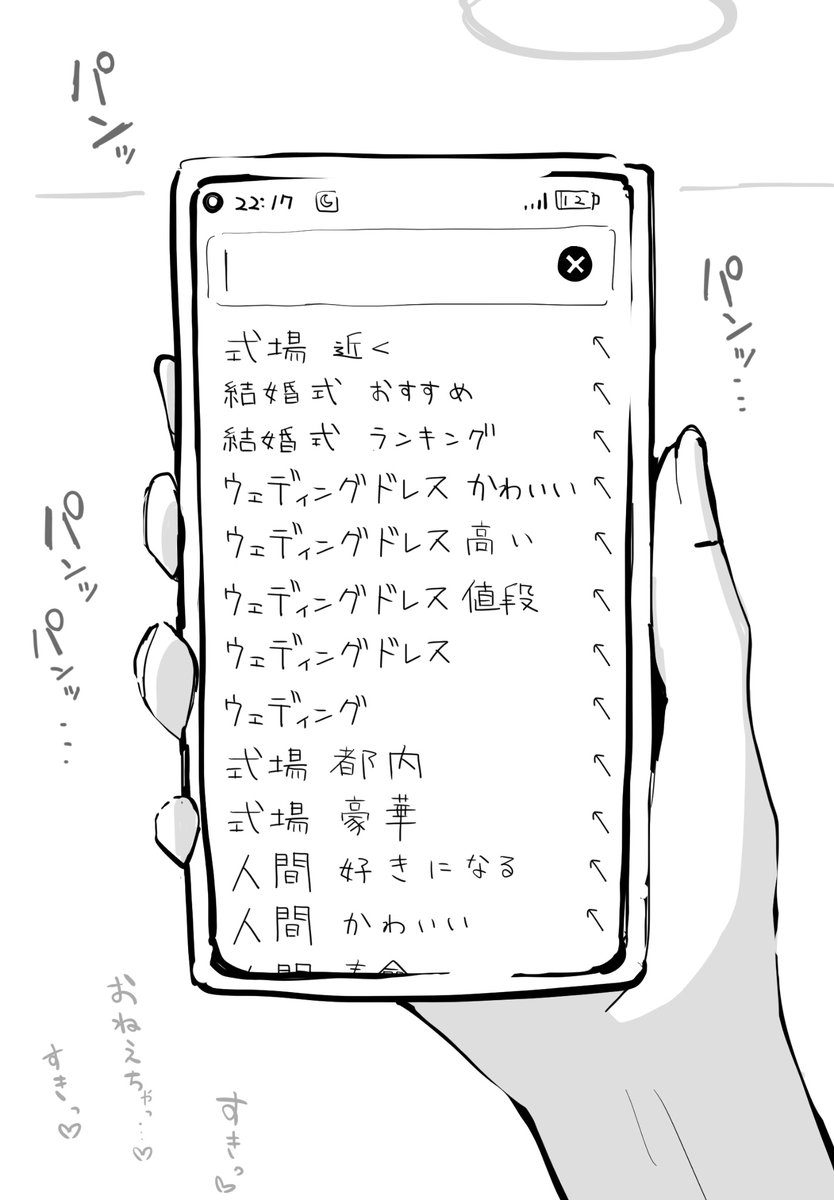 パンッ
22:17
12
式場 近く
結婚式 おすすめ
結婚式 ランキング
ウェディングドレス かわいい
ウェディングドレス 高い
ウェディングドレス 値段
ウェディングドレス
ウェディング
式場 都内
式場 豪華
人間 好きになる
人間 かわいい
パンッ…
パンッ
パンッ…
おねえちゃっ…♡
すきっ♡
すきっ♡